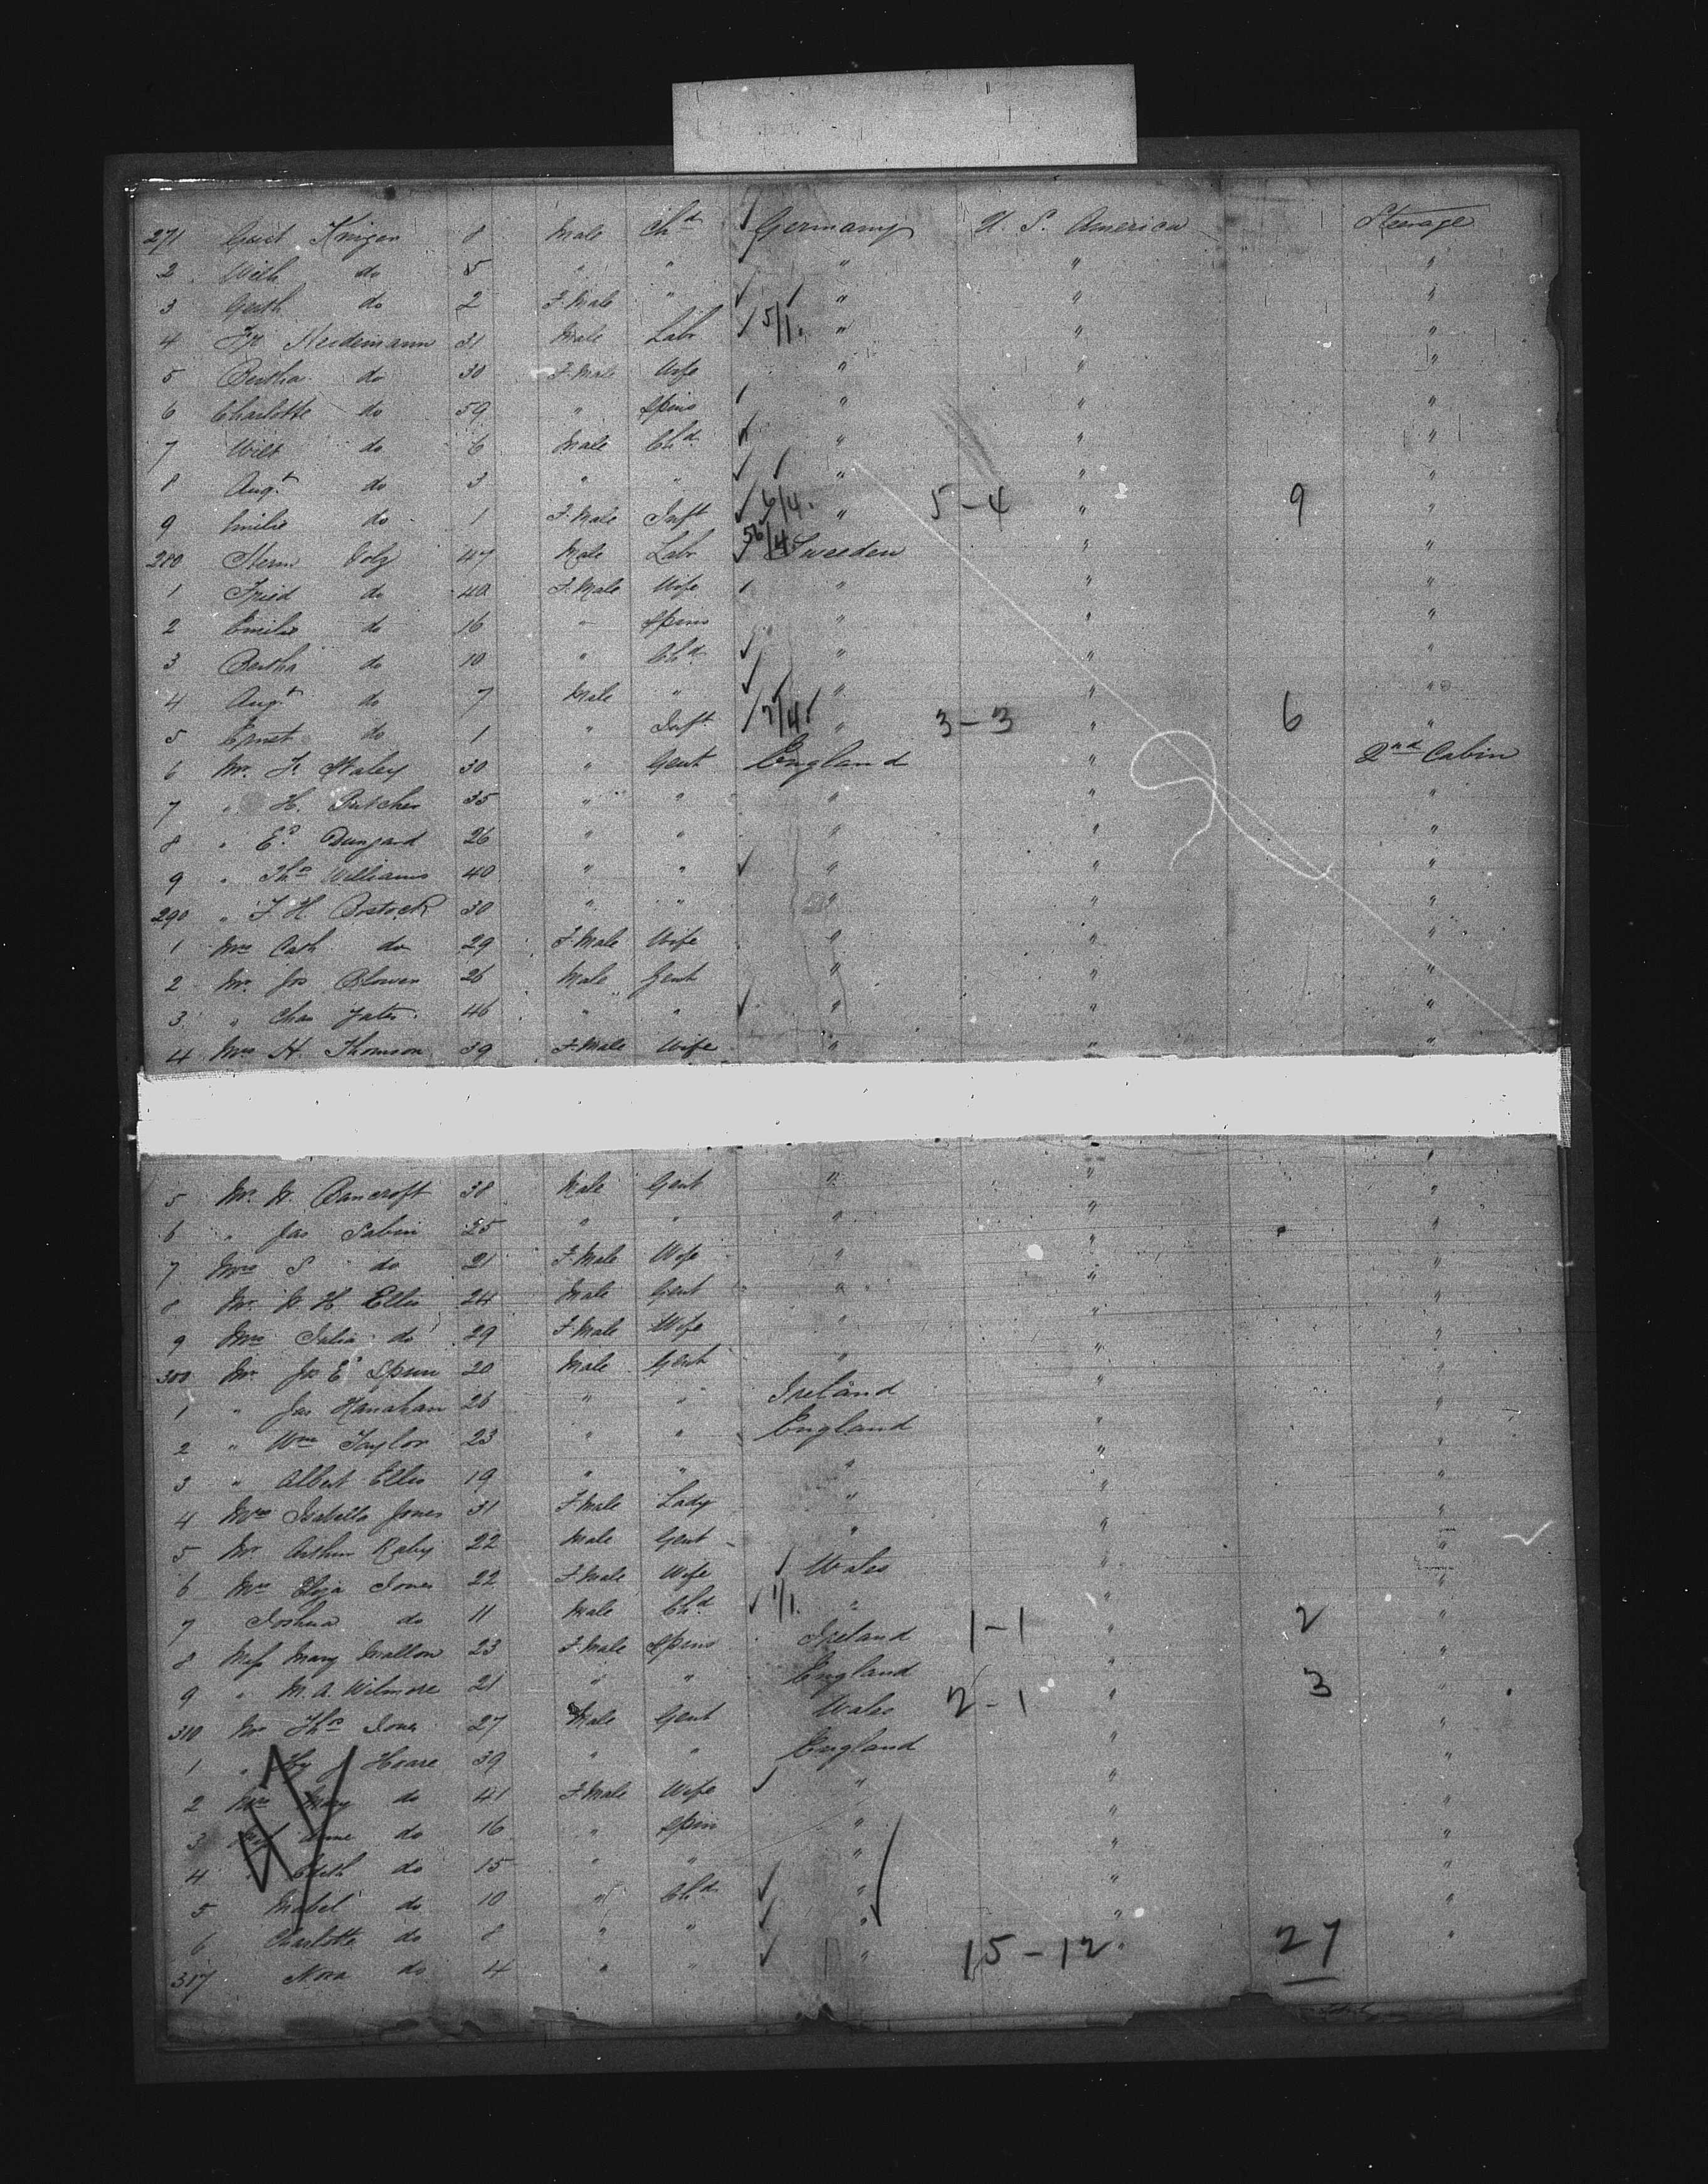 271 Gust Krüger 8 Male Chd Germany U. S. America Steerage
2 Wilh do 5 " " " " "
3 Gerth do 2 F. Male " " " "
4 Fr Heidemann 31 Male Labr 5/1. " " "
5 Bertha do 30 F. Male Wife " " "
6 Charlotte do 59 " Spins " " "
7 Wilh do 6 Male Chd " " "
8 Augt do 3 " " " " "
9 Emilie do 1 F. Male Inft 6/4. " 5-4 " 9 "
280 Herm 47 Male Labr 56/4. Sweeden " "
1 Fried do 40 F. Male Wife " " "
2 Emilie do 16 " Spins " " "
3 Bertha do 10 " Chd " " "
4 Augt do 7 Male " " " "
5 Ernst do 1 " Inft 7/4. " 3-3 " 6 "
6 Mr. F. Staley 30 " Gent England " 2nd Cabin
7 " H. Butcher 35 " " " " "
8 " Ed. Dungard 26 " " " " "
9 " Thos Williams 40 " " " " "
290 " F H. Bostock 30 " " " " "
1 Mrs Cath do 29 F. Male Wife " " "
2 Mr. Jos Blower 26 Male Gent " " "
3 " Chas Yates 46 " " " " "
4 Mrs H. Thomson 39 F. Male Wife " " "
5 Mr. W. Bancroft 38 Male Gent " " "
6 " Jas Sabin 25 " " " " "
7 Mrs S do 21 F. Male Wife " " "
8 Mr. H Ellis 24 Male Gent " " "
9 Mrs Julia do 29 F. Male Wife " " "
300 Mr Jos Ed 20 Male Gent " " "
1 " Jas Hanahan 26 " " Ireland " "
2 " Wm Taylor 23 " " England " "
3 " Albert Ellis 19 " " " " "
4 Mrs Isabella Jones 31 F. Male Lady " " "
5 Mr Arthur Raby 22 Male Gent " " "
6 Mrs Eliza Jones 22 F. Male Wife Wales " "
7 Joshua do 11 Male Chd 1/1. " 1-1 " 2 "
8 Miss Mary Mallon 23 F. Male Spins Ireland " "
9 " M. A. Wilmore 21 " " England 2-1 " 3 "
310 Mr Thos Jones 27 Male Gent Wales " "
1 " Hy J Hoare 39 " " England " "
2 Mrs Mary do 41 F. Male Wife " " "
3 Miss Anne do 16 " Spin " " "
4 " Edith do 15 " " " " "
5 Mabel do 10 " Chd " " "
6 Charlotte do 8 " " " " "
317 Nora do 4 " " " 15-12 " 27 "